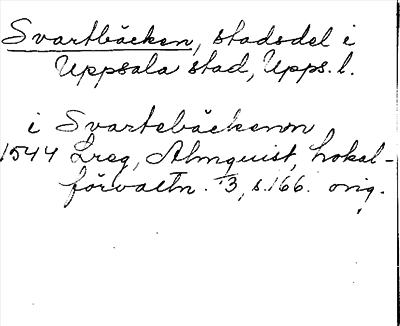 Svartbäcken, stadsdel i
Uppsala stad, Upps. l.
i Svartebäckenon
1544 Lreg, Almquist, Lokal-
förvaltn. 3, s. 166. orig.